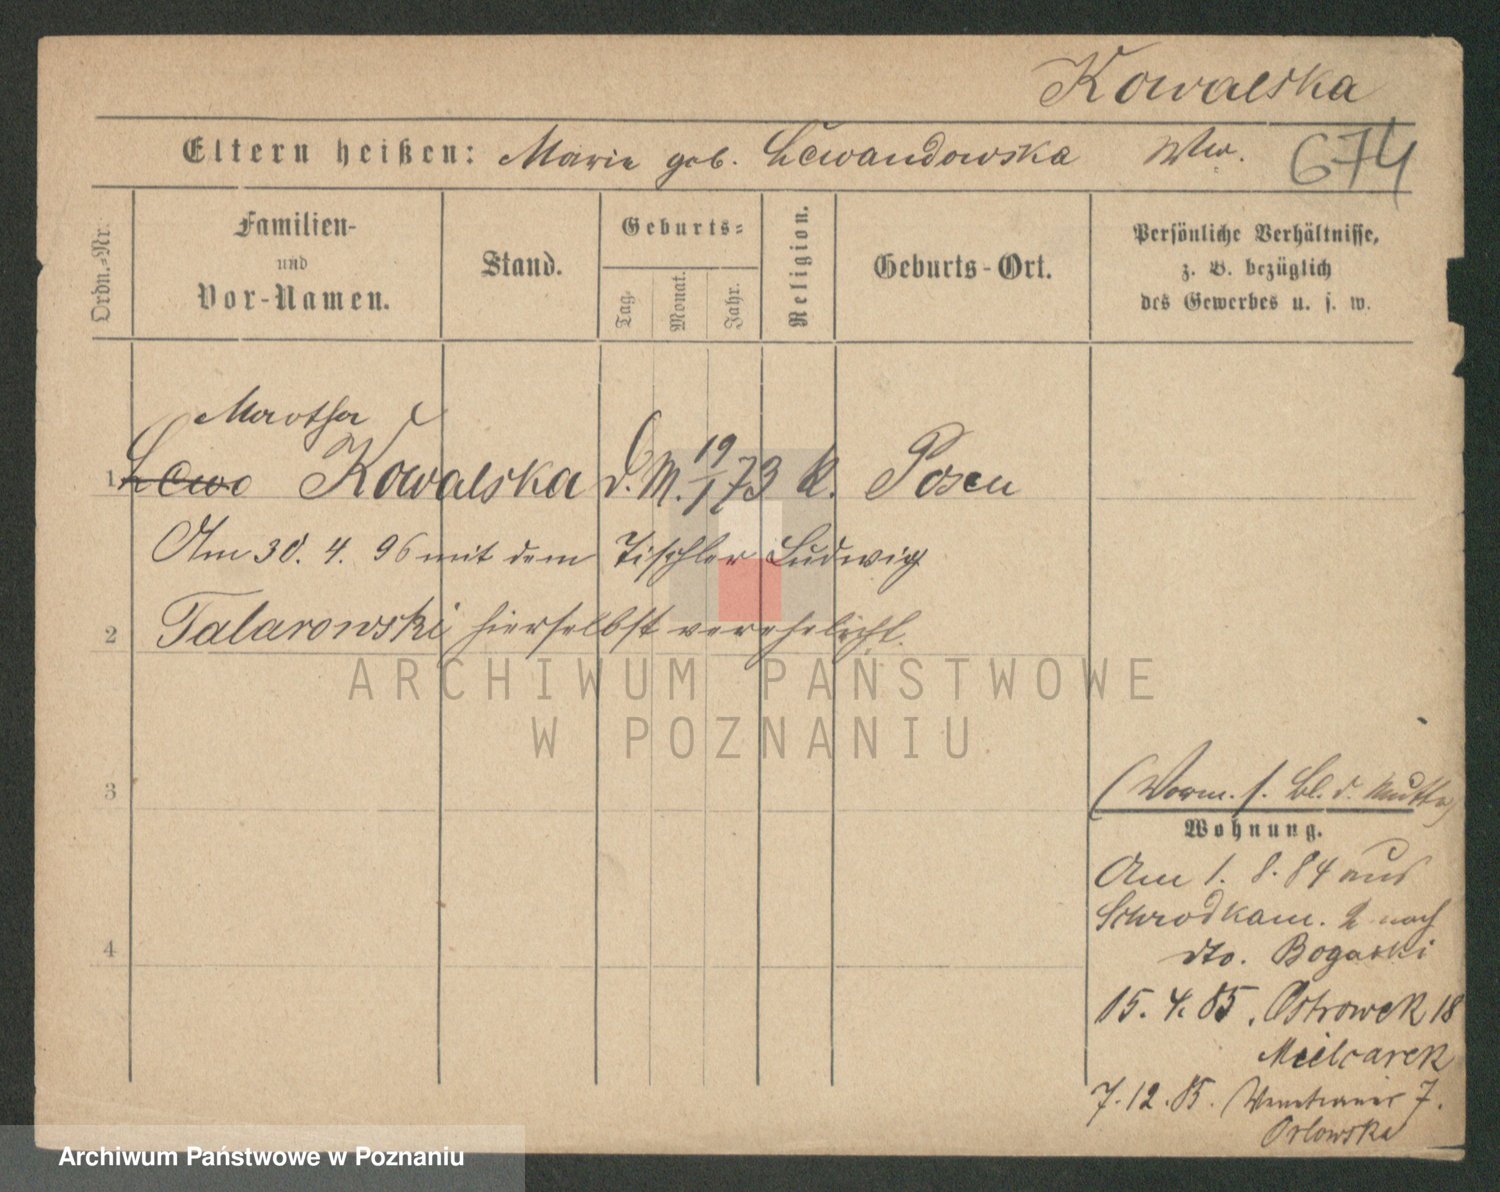 Kowalska
Eltern heißen: Marie geb. Lewandowska Ww. 674
Ordn.=Nr.
Familien-
und
Vor-Namen.
Stand.
Geburts=
Tag.
Monat.
Jahr.
Religion.
Geburts-Ort.
Persönliche Verhältnisse,
z. B. bezüglich
des Gewerbes u. s. w.
Martha
1 Lewo Kowalska d. M. 19/1 73 k. Posen
Am 30. 4. 96 mit dem Tischler Ludwig
2 Talarowski hierselbst verehelicht.
ARCHIWUM PAŃSTWOWE
W POZNANIU
3
(Vorm. s. Bl. d. Mutter)
Wohnung.
Am 1. 8. 84 aus
Schrodkam. 2 nach
4
dto. Bogacki
15. 4. 85. Ostrowek 18
Mielcarek
7. 12. 85. 7.
Orlowska
Archiwum Państwowe w Poznaniu